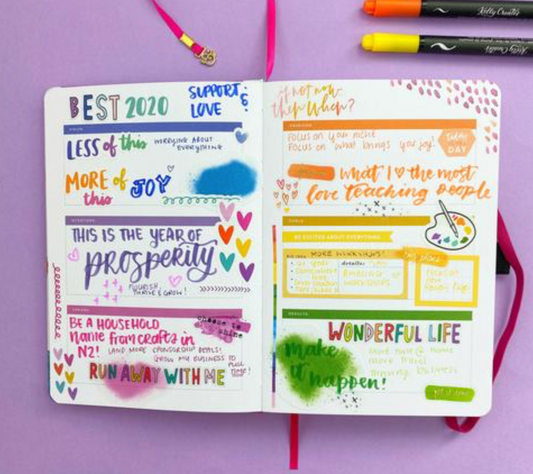 BEST 2020
SUPPORT &
LOVE
LESS of this
WORRYING ABOUT
EVERYTHING
MORE of
this
JOY
THIS IS THE YEAR OF
prosperity
NOURISH
& GROW!
choose to
shine
BE A HOUSEHOLD
name from crafts in
NZ!
LAND MORE SPONSORSHIP DEALS!
GROW MY BUSINESS TO FULL
TIME!
RUN AWAY WITH ME
if not now
then when?
FOCUS on your niche
FOCUS on what brings you joy!
TODAY
DAY
What I ♡ the most
love teaching people
BE EXCITED ABOUT EVERYTHING
MORE WORKSHOPS!
WONDERFUL LIFE
make
it
happen!
more time @ home
more travel
thriving business
Kelly Creates
Kelly Creates